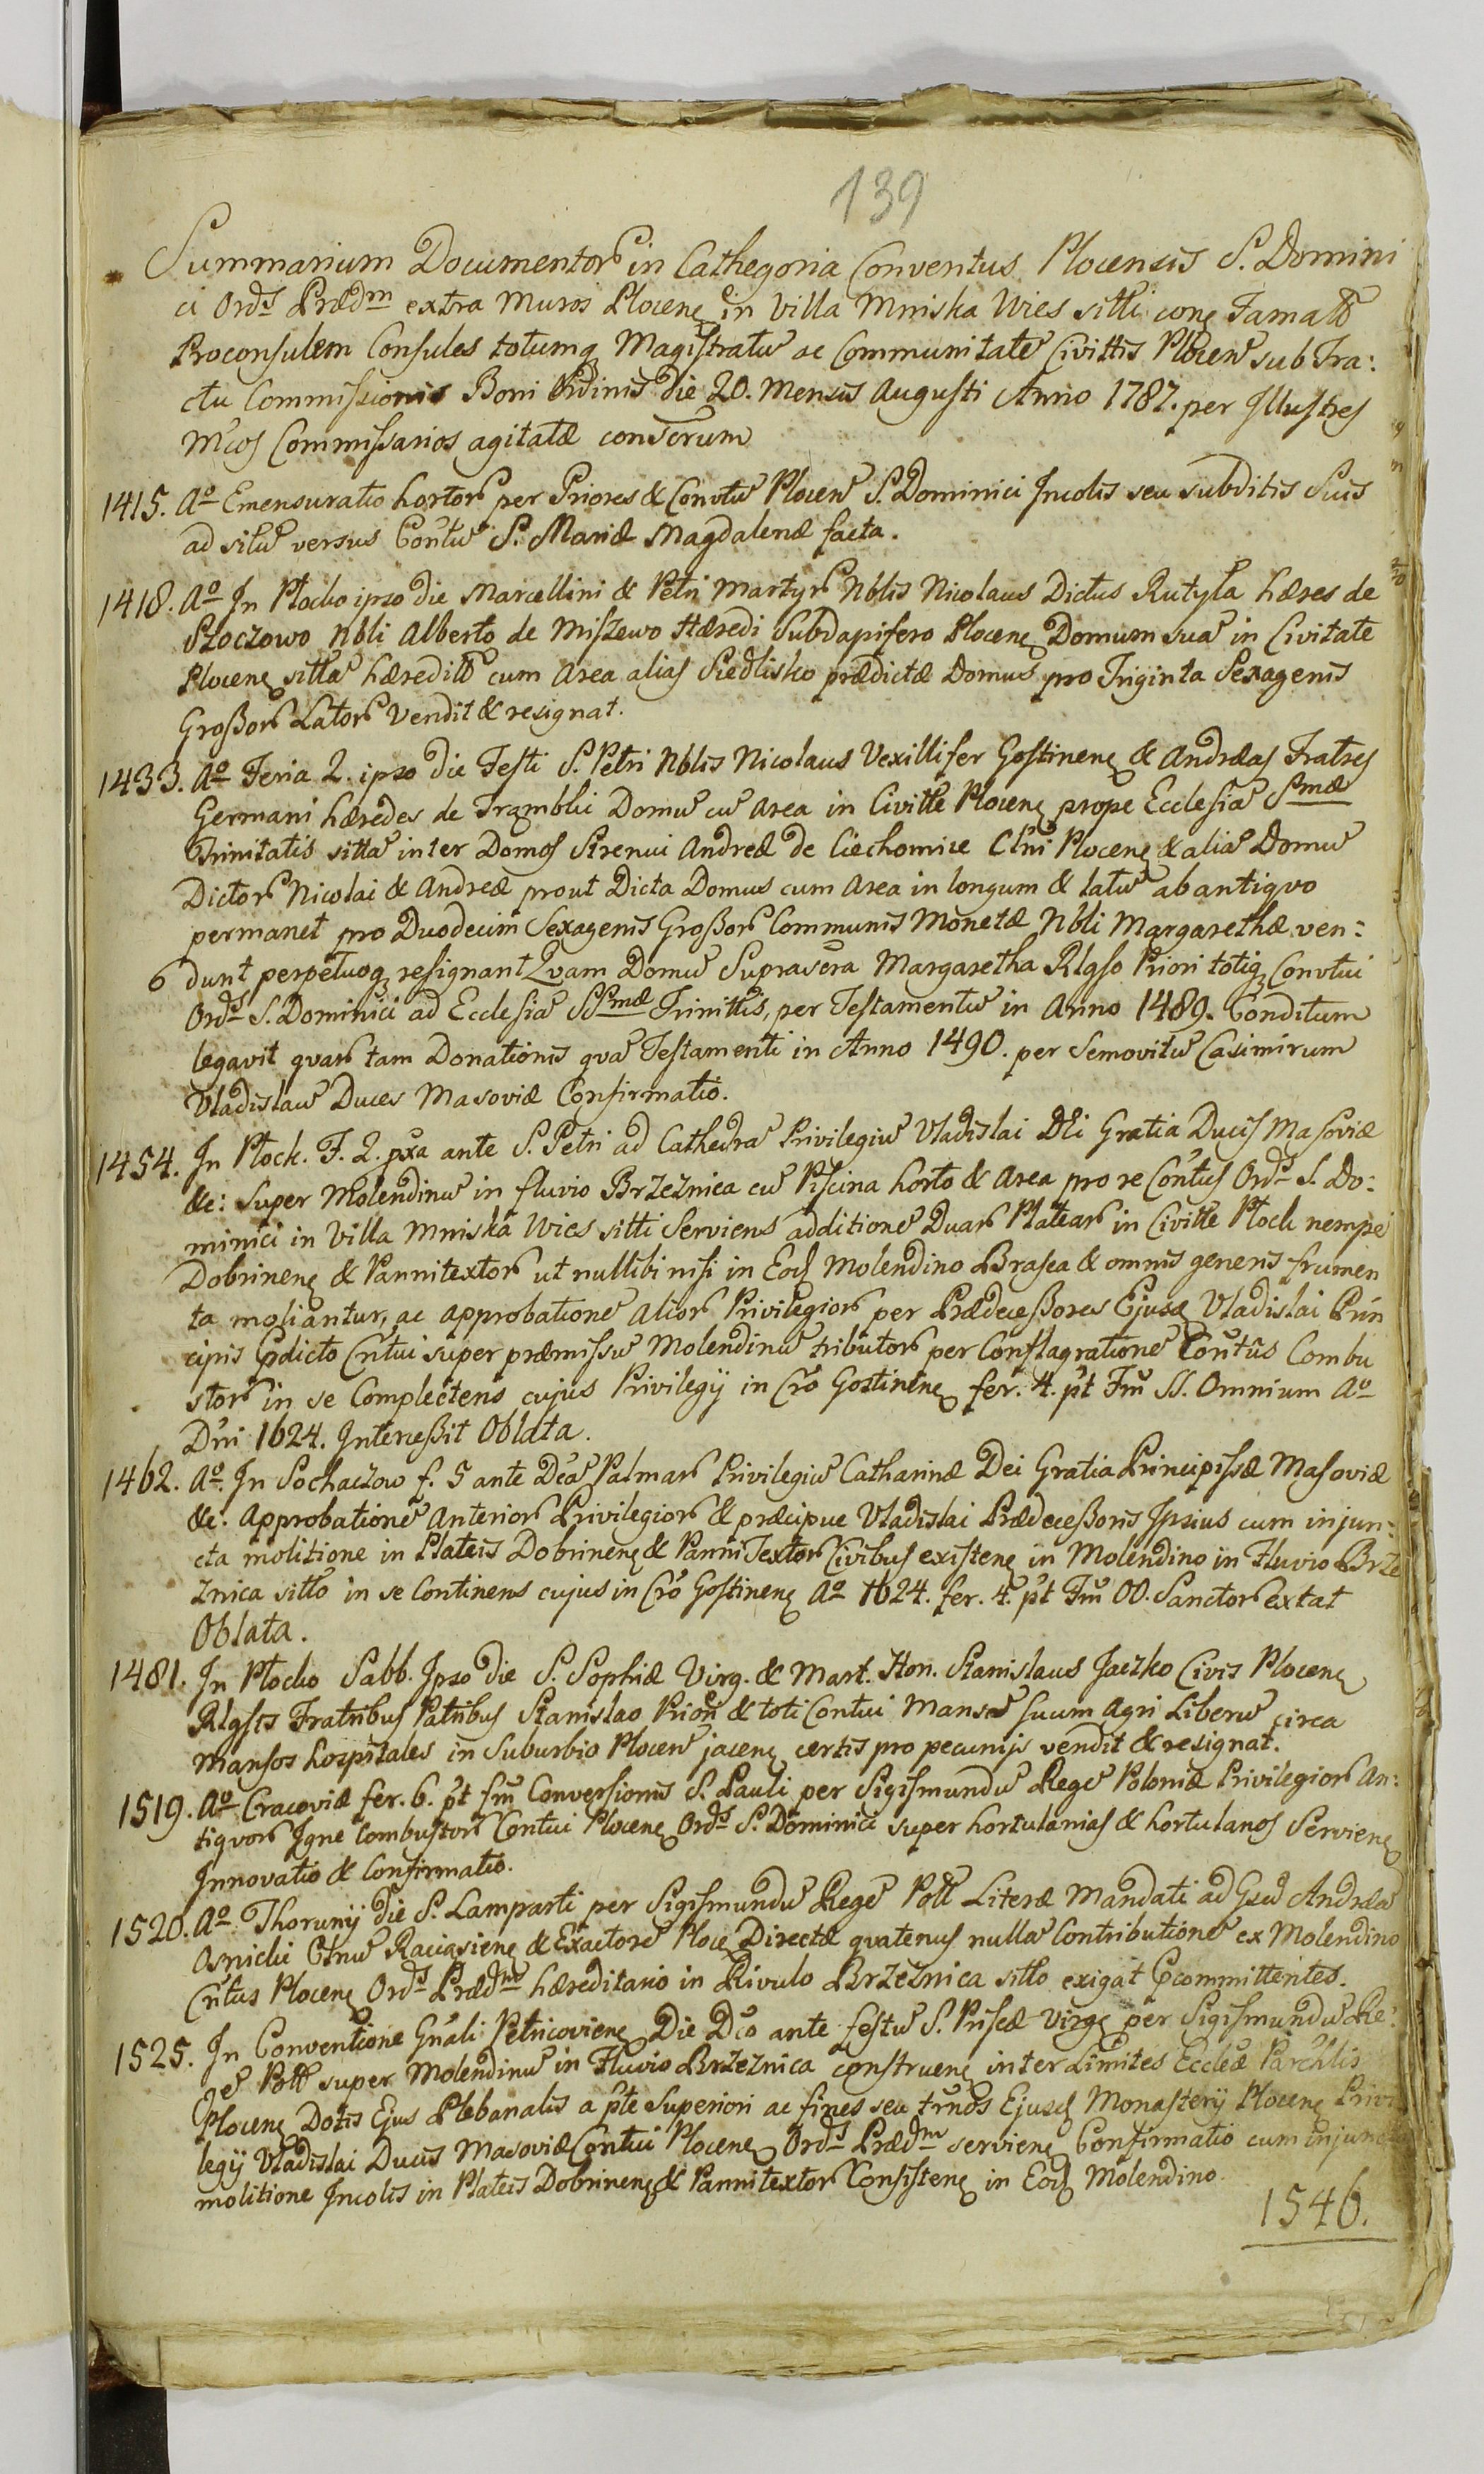 139
Summarium Documentor in Cathegoria Conventus Plocensis S. Domini
ci Ords Prædm extra Muros Plocen in Villa Mniska Wies sitti con Famatt
Proconsulem Consules totumq Magistratu ac Communitate Civittis Plocen sub Tra:
ctu Commissionis Boni Ordinis die 20. Mensis Augusti Anno 1787. per Illustres
Mcos Commissarios agitatæ
1415. Ao Emensuratio hortor per Priores & Convtu Plocen S. Dominici Incolis seu subditis Suis
ad situ versus Contu S. Mariæ Magdalenæ facta.
1418. Ao In Plocko ipso die Marcellini & Petri Martyr Nblis Nicolaus Dictus Rutyla hæres de
Sloczowo Nbli Alberto de Miszewo Hæredi Subdapifero Plocen Domum sua in Civitate
Plocen sitta hæreditt cum Area alias Siedlisko prædictæ Domus pro Triginta Sexagenis
Großor Lator Vendit & resignat.
1433. Ao Feria 2. ipso die Festi S. Petri Nblis Nicolaus Vexillifer Gostinen & Andreas Fratres
Germani hæredes de Trambki Domu cu Area in Civitte Plocen prope Ecclesia Smæ
Trinitatis sitta inter Domos Strenui Andreæ de Ciechomice Ctni Plocen & alia Domu
Dictor Nicolai & Andreæ prout Dicta Domus cum Area in longum & latu ab antiqvo
permanet pro Duodecim Sexagenis Großor Communis Monetæ Nbli Margarethæ ven:
6 dunt perpetuoq resignant Qvam Domu Suprascra Margaretha Rlgso Priori totiq Convtui
Ords S. Dominici ad Ecclesia SSmæ Trinittis, per Testamentu in Anno 1489. Conditum
legavit qvar tam Donationis qva Testamenti in Anno 1490. per Semovitu Casimirum
Vladislau Duces Masoviæ Confirmatio.
1454. In Plock. F. 2. pxa ante S. Petri ad Cathedra Privilegiu Vladislai Dei Gratia Ducis Masoviæ
&c: Super Molendinu in fluvio Brzeznica cu Piscina horto & Area pro re Contus Ords S. Do:
minici in Villa Mniska Wies sitti Serviens additione Duar Platear in Civitte Plock nempe
Dobrinen & Pannitextor ut nullibi nisi in Eod Molendino Brasea & omnis generis frumen
ta moliantur, ac approbatione alior Privilegior per Prædeceßores Ejusd Vladislai Prin
cipis Pdicto Cntui super præmissu Molendinu tributor per Conflagratione Contus Combu
stor in se Complectens cujus Privilegij in Cro Gostinen fer. 4. pt Fm SS. Omnium Ao
Dni 1624. Interceßit Oblata.
1462. Ao. In Sochaczow f. 5 ante Dca Palmar Privilegiu Catharinæ Dei Gratia Principissæ Masoviæ
&c. Approbatione Anterior Privilegior & præcipue Vladislai Prædeceßoris Ipsius cum injun:
cta molitione in Plateis Dobrinen & PanniTextor Civibus existen in Molendino in Fluvio Brze
znica sitto in se Continens cujus in Cro Gostinen Ao 1624. fer. 4. pt Fm OO. Sanctor extat
Oblata.
1481. In Plocko Sabb. Ipso die S. Sophiæ Virg. & Mart. Hon. Stanislaus Jaczko Civis Plocen
Rlgsis Fratribus Patribus Stanislao Priori & toti Contui Mansu suum Agri Liberu circa
Mansos hospitales in Suburbio Plocen jacen certis pro pecunijs vendit & resignat.
1519. Ao Cracoviæ fer. 6. pt fm Conversionis S. Pauli per Sigismundu Rege Poloniæ Privilegior An:
tiqvor Igne Combustor Contui Plocen Ords S. Dominici super hortulanias & hortulanos Servien
Innovatio & Confirmatio.
1520. Ao. Thorunij die S. Lamparti per Sigismundu Rege Poll Literæ Mandati ad Gsu Andrea
Osnicki Ctnu Raciasien & Exactore Ploc Directæ qvatenus nulla Contributione ex Molendino
Cntus Plocen Ords Prædm hæreditario in Rivulo Brzeznica sitto exigat Pcommittentes.
1525. In Conventione Gnali Petricovien Die Dco ante festu S. Priscæ Virg per Sigismundu Re:
ge Poll super Molendinu in Fluvio Brzeznica construen inter Limites Eccleæ Parchlis
Plocen Dotis Ejus Plebanalis a pte Superiori ac fines seu trnos Ejusd Monasterij Plocen Privi
legij Vladislai Ducis Masoviæ Contui Plocen Ords Prædm servien Confirmatio cum injuncta
molitione Incolis in Plateis Dobrinen & Pannitextor Consisten in Eod Molendino
1546.